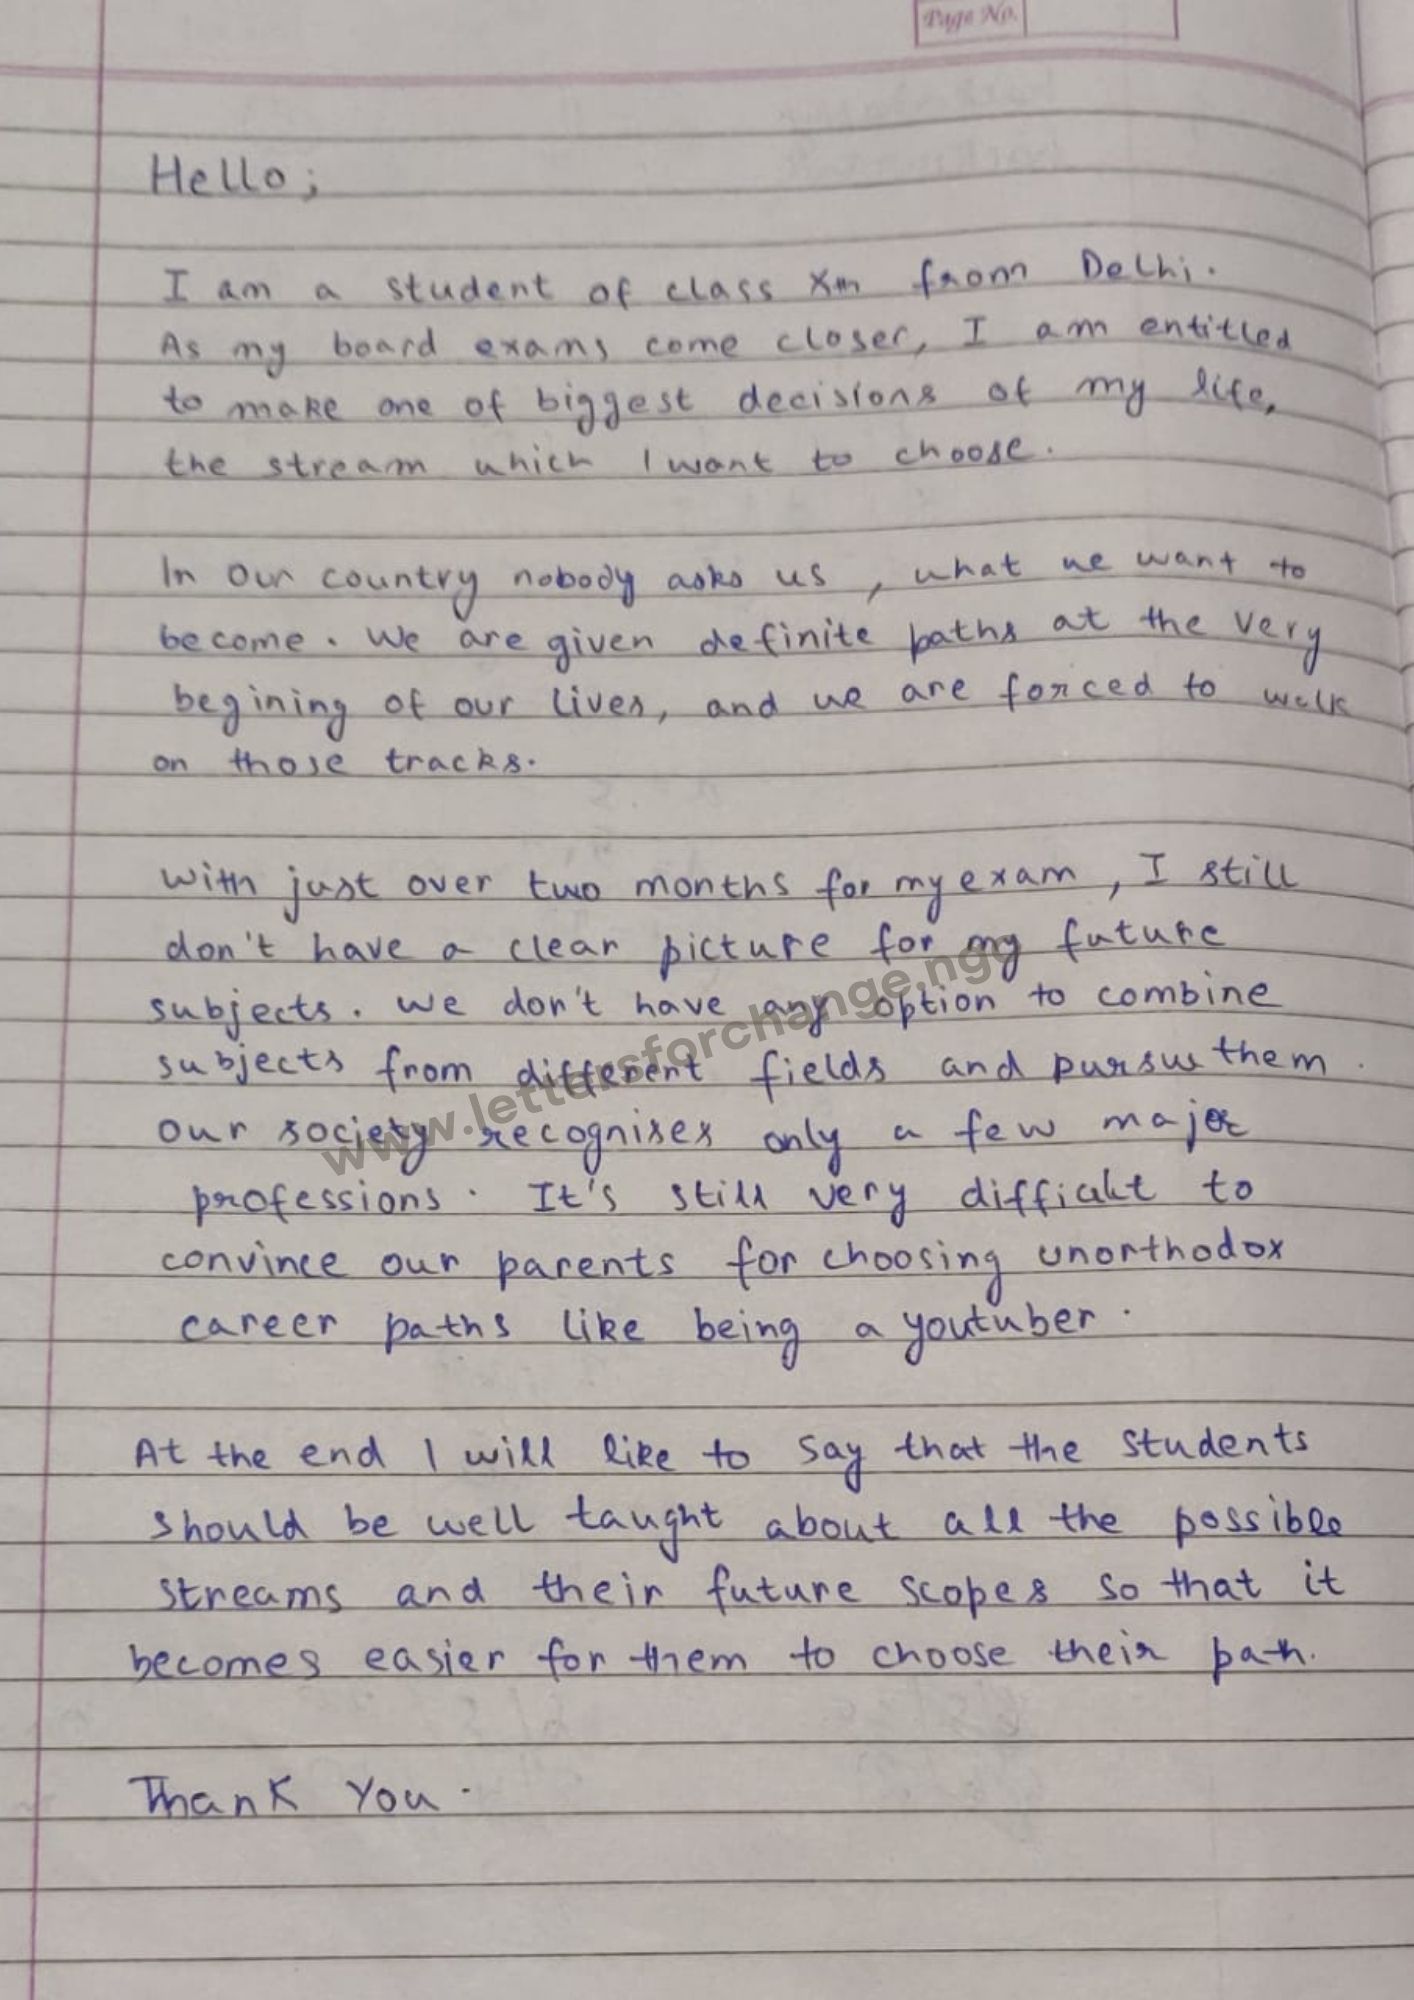 Page No.
Hello;
I am a student of class Xth from Delhi.
As my board exams come closer, I am entitled
to make one of biggest decisions of my life,
the stream which I want to choose.
In our country nobody asks us, what we want to
become. We are given definite paths at the very
begining of our lives, and we are forced to walk
on those tracks.
With just over two months for my exam, I still
don't have a clear picture for my future
subjects. We don't have any option to combine
subjects from different fields and pursue them.
Our society recognises only a few major
professions. It's still very difficult to
convince our parents for choosing unorthodox
career paths like being a youtuber.
At the end I will like to say that the students
should be well taught about all the possible
streams and their future scopes so that it
becomes easier for them to choose their path.
Thank You.
www.lettersforchange.ngo